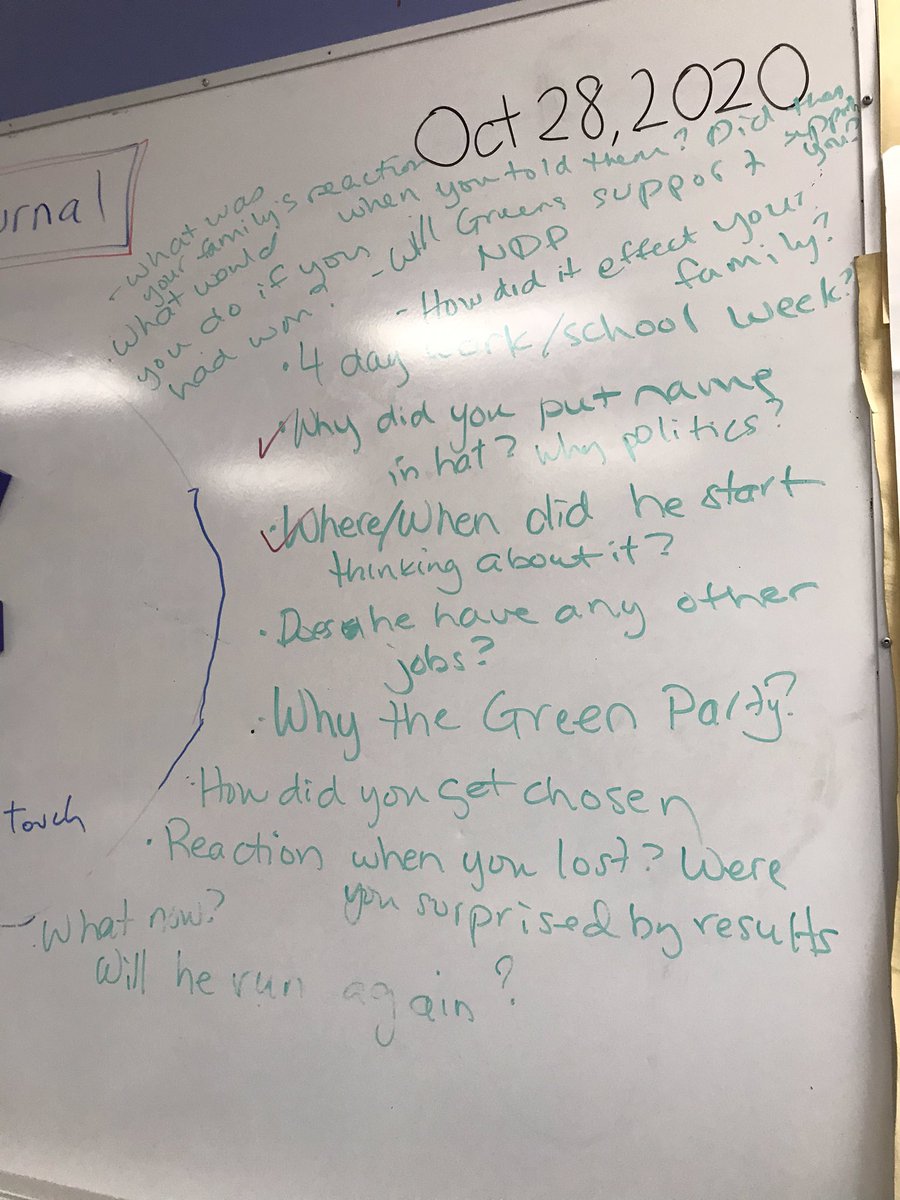 Oct 28, 2020
urnal
- What was
your family's reaction
when you told them? Did they
support
you?
What would
you do if you
had won?
- Will Greens support
NDP
- How did it effect your
family?
• 4 day work/school week?
• Why did you put name
in hat? Why politics?
• Where/When did he start
thinking about it?
• Does he have any other
jobs?
• Why the Green Party?
• How did you get chosen
touch
• Reaction when you lost? Were
you surprised by results
- What now?
Will he run again?